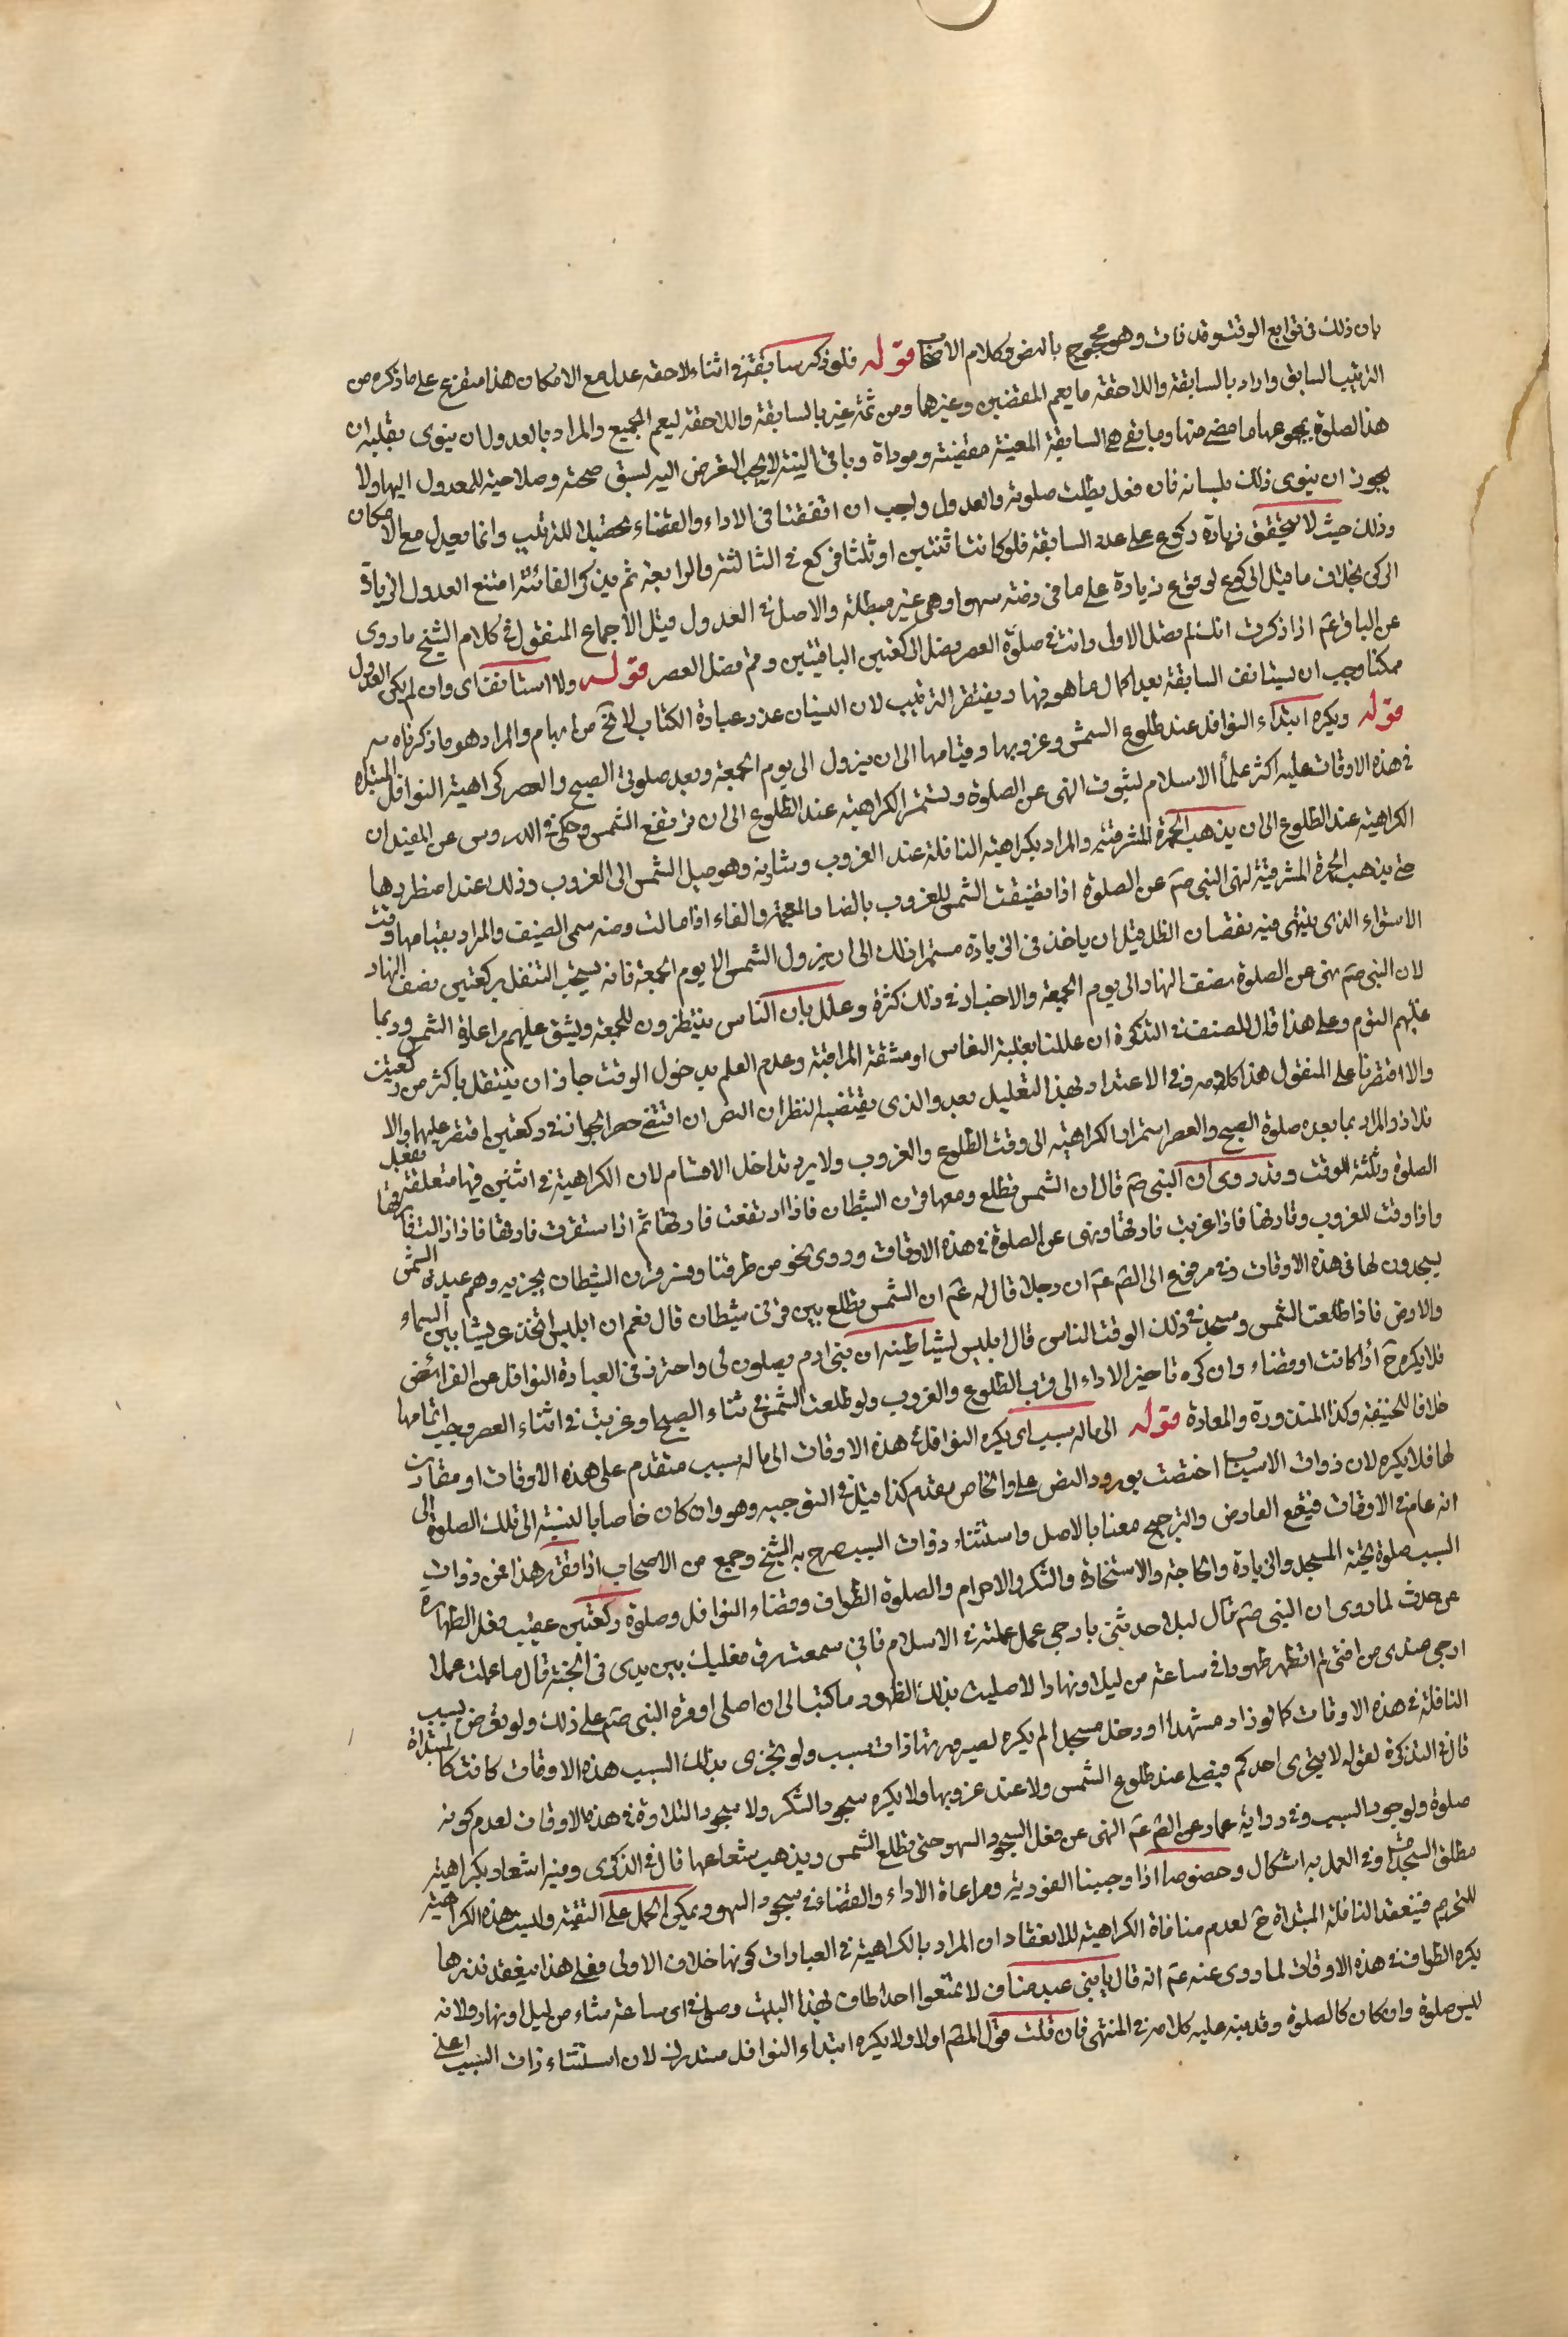 بان ذلك فى توابع الوقت وقد فات وهو محجوج بالنص وكلام الاصحاب قوله فلو ذكر سابقة فى اثناء لاحقه عدل مع الامكان هذا متفرع على ما ذكره من
الترتيب السابق واراد بالسابقة واللاحقة ما يعم المقضيين وغيرهما ومن ثمة عبر بالسابقة واللاحقة ليعم الجميع والمراد بالعدول ان ينوى بقلبه ان
هذا لصلوة بمجموعها ما مضى منها وما بقى هى السابقة المعينة مقضية وموداة وباقى النية لا يجب التعرض اليه لسبق صحته وصلاحيته للمعدول اليها ولا
يجوز ان ينوى ذلك بلسانه فان فعل بطلت صلوته والعدول واجب ان اتفقتا فى الاداء والقضاء تحصيلا للترتيب وانما يعدل مع الامكان
وذلك حيث لا يتحقق زيادة ركوع على عدد السابقة فلو كانتا ثنتين او ثلثا فركع فى الثالثة والرابعة ثم يذكر الفائتة امتنع العدول لزيادة
الركن بخلاف ما قبل الركوع لوقوع زيادة على ما فى ذمته سهوا وهى غير مبطلة والاصل فى العدول قبل الاجماع المنقول فى كلام الشيخ ما روى
عن الباقر عم اذا ذكرت انك لم تصل الاولى وانت فى صلوة العصر فصل الركعتين الباقيتين وقم فصل العصر قوله والا استانف اى وان لم يكن العدول
ممكنا وجب ان يستانف السابقة بعد اكمال ما هو فيها ويغتفر الترتيب لان النسيان عذر وعبارة الكتاب لا تخ من ابهام والمراد هو ما ذكرناه
قوله ويكره ابتداء النوافل عند طلوع الشمس وغروبها وقيامها الى ان يزول الى يوم الجمعة وبعد صلوتى الصبح والعصر كراهية النوافل المبتداة
فى هذه الاوقات عليه اكثر علماء الاسلام لثبوت النهى عن الصلوة وتستمر الكراهية عند الطلوع الى ان ترتفع الشمس وحكى فى الدروس عن المفيد ان
الكراهية عند الطلوع الى ان يذهب الحمرة المشرقية والمراد بكراهية النافلة عند الغروب وشارفه وهو ميل الشمس الى الغروب وذلك عند اصفرارها
حتى يذهب الحمرة المشرقية لنهى النبى صم عن الصلوة اذا تضيفت الشمس للغروب بالضاد المعجمة والفاء اذا مالت ومنه سمى الضيف والمراد بقيامها وقت
الاستواء الذى ينتهى فيه نقصان الظل قبل ان ياخذ فى الزيادة مستمرا ذلك الى ان يزول الشمس الا يوم الجمعة فانه يستحب التنفل بركعتين نصف النهار
لان النبى صم نهى عن الصلوة نصف النهار الى يوم الجمعة والاخبار فى ذلك كثرة وعلل بان الناس ينتظرون للجمعة ويشق عليهم مراعاة الشمس وربما
غلبهم النوم وعلى هذا قال المصنف فى التذكرة ان عللنا بغلبة النعاس او مشقة المراقبة وعدم العلم بدخول الوقت جاز ان يتنفل باكثر من ركعتين
والا اقتصرنا على المنقول هذا كلامه وفى الاعتداد بهذا التعليل بعد والذى يقتضيه النظر ان النص ان اقتضى حصر الجواز فى ركعتين اقتصر عليهما والا
فلا ذ والمراد بما بعد صلوة الصبح والعصر استمرار الكراهية الى وقت الطلوع والغروب ولا يرد تداخل الاقسام لان الكراهية فى اثنين فيها متعلقة بفعل
الصلوة وثلثة للوقت وقد روى ان النبى صم قال ان الشمس تطلع ومعها قرن الشيطان فاذا ارتفعت فارقها ثم اذا استقرت فارقها فاذا زالت فارقها
واذا دنت للغروب وقارنها فاذا غربت فارقها ونهى عن الصلوة فى هذه الاوقات وروى نحو من طرقنا وفسر قرن الشيطان بحزبه وهم عبدة الشمس
يسجدون لها فى هذه الاوقات وفى مرفوع الى الصم عم ان رجلا قال له عم ان الشمس تطلع بين قرنى شيطان قال نعم ان ابليس اتخذ عريشا بين السماء
والارض فاذا طلعت الشمس وسجد فى ذلك الوقت الناس قال ابليس لشياطينه ان بنى ادم يصلون لى واحترز فى العبادة النوافل عن الفرائض
فلا يكره ح أداء كانت او قضاء وان كره تاخير الاداء الى قرب الطلوع والغروب ولو طلعت الشمس فى اثناء الصبح او غربت فى اثناء العصر وجب اتمامها
خلافا للحنيفة وكذا المنذورة والمعادة قوله الى ماله سبب اى يكره النوافل فى هذه الاوقات الى ما له سبب متقدم على هذه الاوقات او مقارن
لها فلا يكره لان ذوات الاسباب اختصت بورود النص على والخاص مقدم كذا قيل فى التوجيه وهو وان كان خاصا بالنسبة الى تلك الصلوة الى
انه عام فى الاوقات فيقع التعارض والترجيح معنا بالاصل واستثناء ذوات السبب صرح به الشيخ وجمع من الاصحاب اذا تقرر هذا فمن ذوات
السبب صلوة تحية المسجد والزيادة والحاجة والاستخارة والشكر والاحرام والصلوة الطواف وقضاء النوافل وصلوة ركعتين عقيب فعل الطهارة
عن حدث لما روى ان النبى صم قال لبلال حدثنى بارجى عمل عملته فى الاسلام فانى سمعت نعليك بين يدى فى الجنة قال ما عملت عملا
ارجى عندى من اننى لم اتطهر طهورا فى ساعة من ليل او نهار الا صليت بذلك الطهور ما كتب الى ان اصلى اوقره النبى صم على ذلك ولو تعرض لسبب
النافلة فى هذه الاوقات كما لو زار مشهدا او دخل مسجدا لم يكره لصيرورتها ذات سبب ولو تحرى بذلك السبب هذه الاوقات كانت كالمبتداة
قال فى التذكرة لقوله لا يتحرى احدكم فيصلى عند طلوع الشمس ولا عند غروبها ولا يكره سجود الشكر ولا سجود التلاوة فى هذه الاوقات لعدم كونه
صلوة ولوجود السبب وفى رواية عمار عن الصم عم النهى عن فعل السجود السهو حتى تطلع الشمس ويذهب شعاعها قال فى الذكرى وفيه اشعار بكراهية
مطلق السجدات وفى العمل به اشكال وخصوصا اذا اوجبنا الفورية ومراعاة الاداء والقضاء فى سجود السهو ويمكن الحمل على التقية وليست هذه الكراهية
للتحريم فينعقد النافلة المبتداة ح لعدم منافاة الكراهية للانعقاد ان المراد بالكراهية فى العبادات كونها خلاف الاولى فعلى هذا ينعقد نذرها
يكره الطواف فى هذه الاوقات لما روى عنه عم انه قال يا بنى عبد مناف لا تمنعوا احدا طاف بهذا البيت وصلى فى اى ساعة شاء من ليل او نهار ولانه
ليس صلوة وان كان كالصلوة وقد نبه عليه كلامه فى المنتهى فان قلت قول المص اولا ولا يكره ابتداء النوافل مستدرك لان استثناء ذات السبب اعلى